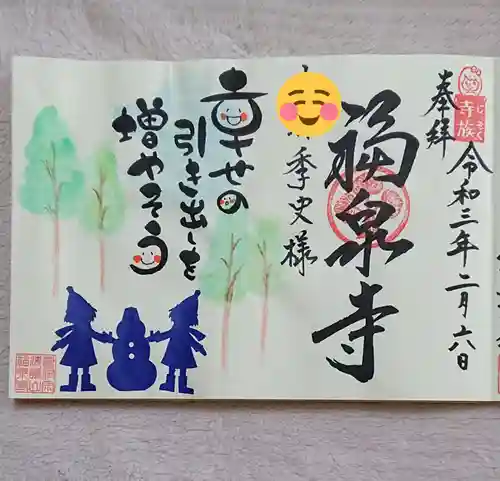 奉拝
じぞく
寺族
令和三年二月六日
福泉寺
季史様
幸せの
引き出しを
増やそう